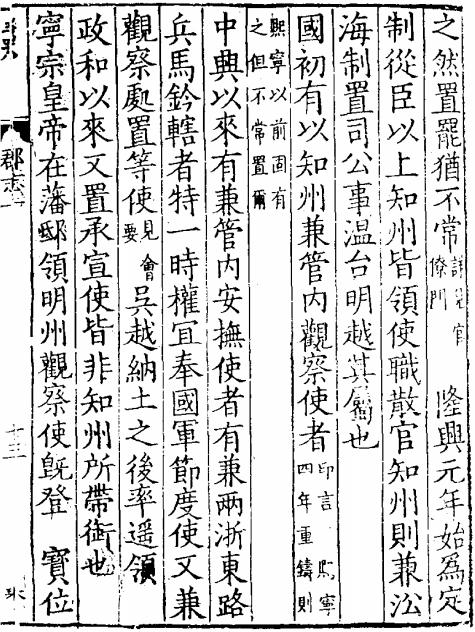 之然置罷猶不常詳見官僚門 隆興元年始爲定
制從臣以上知州皆領使職散官知州則兼沿
海制置司公事温台明越其屬也
國初有以知州兼管内觀察使者印言熙寧四年重鑄則
熙寧以前固有之但不常置爾
中興以來有兼管内安撫使者有兼兩浙東路
兵馬鈐轄者特一時權宜奉國軍節度使又兼
觀察處置等使見會要吳越納土之後率遥領
政和以來又置承宣使皆非知州所帶銜也
寧宗皇帝在藩邸領明州觀察使旣登 寳位
郡志一
十三